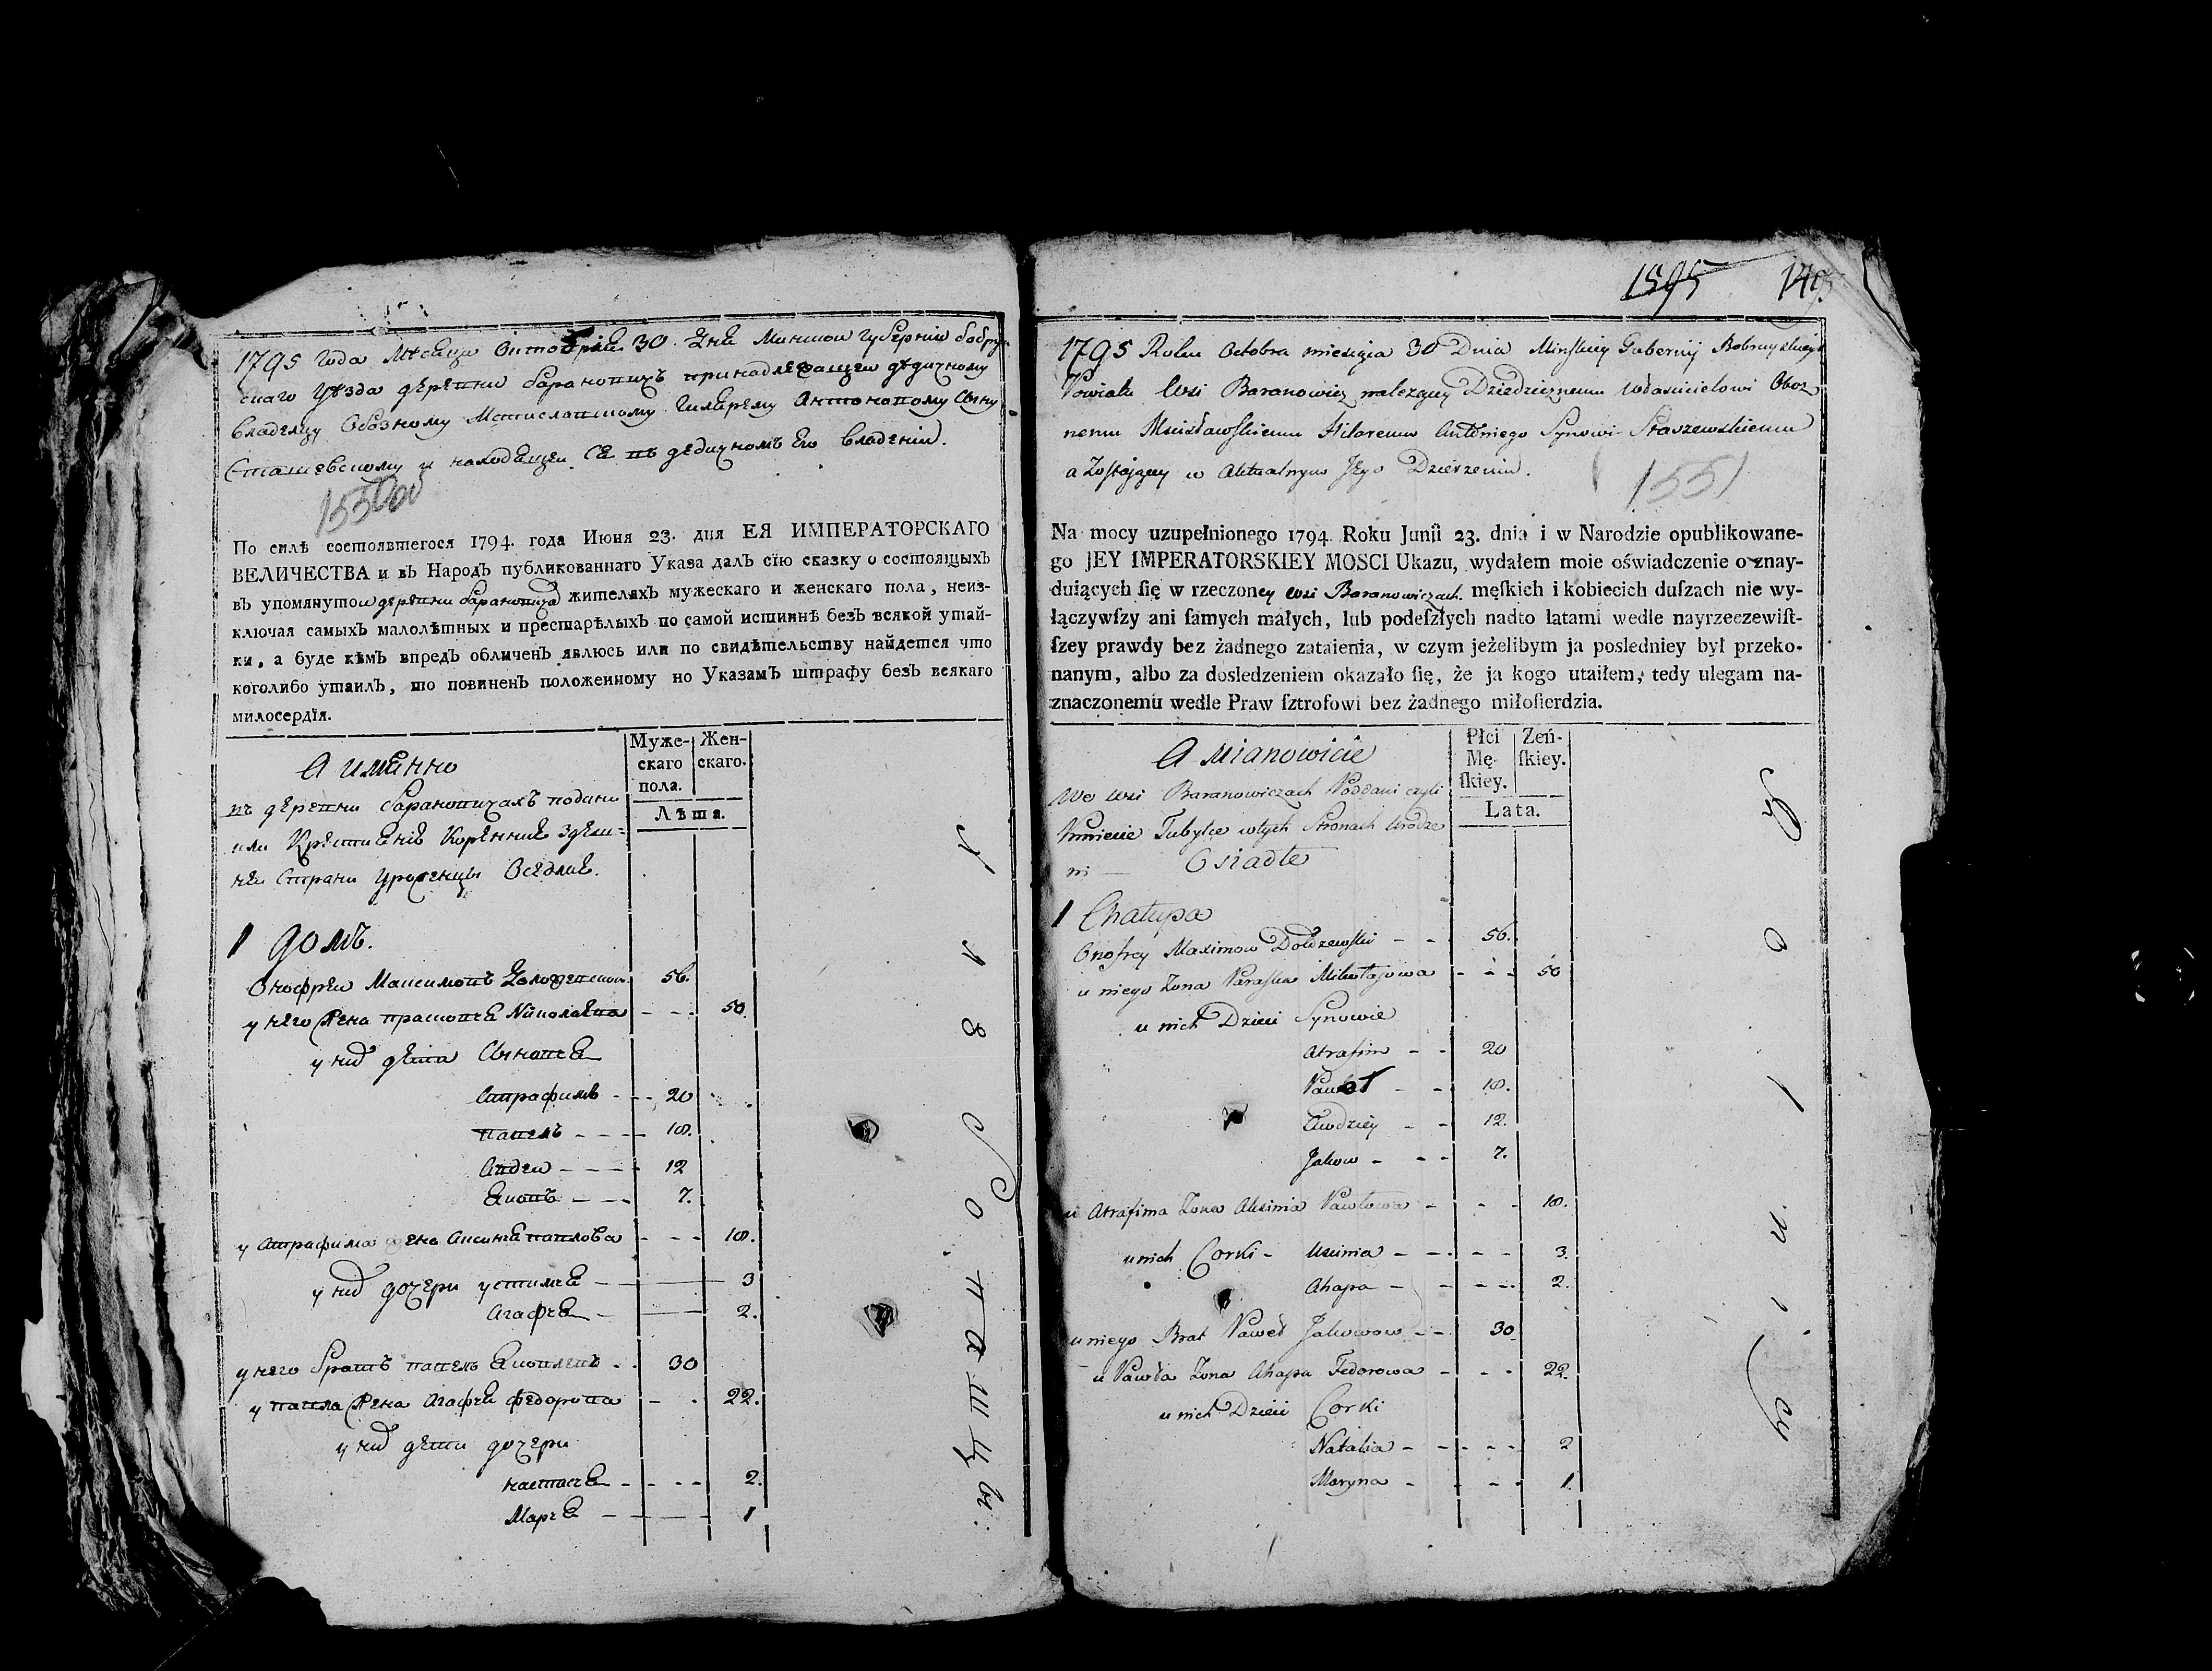 1795 года Мѣсяца Октобрія 30 Дня Минской Губерніи Бобруй-
скаго Уѣзда деревни Барановичъ принадлежащей дѣдичному
Владелцу Обозному Мстиславскому Гиляремy Антоновому Сыну
Сташевскому и находящей Ся въ дедичномъ Его Владеніи.
По силѣ состоявшегося 1794. года Июня 23. дня ЕЯ ИМПЕРАТОРСКАГО
ВЕЛИЧЕСТВА и въ Народъ публикованнаго Указа далъ сїю сказку о состоящыхъ
въ упомянутой деревни Барановича жителяхъ мужескаго и женскаго пола, неиз-
ключая самыхъ малолѣтных и престарѣлыхъ по самой истиннѣ безъ всякой утай-
ки, а буде кѣмъ впредъ обличенъ явлюсь или по свидѣтельству найдется что
коголибо утаилъ, то повиненъ положенному по Указамъ штрафу безъ всякаго
милосердїя.
А имянно
Муже-
скаго
пола.
Жен-
скаго.
Лѣта.
въ деревни Барановичахъ подани
или Крестяніе Коренніе Здеш-
ней Страни Уроженцы Оседліе.
1 домъ.
Онофрей Максимовъ Должевской 56.
у него Жена Прасковя Николаева - - - 50.
у нихъ дети Сыновя
Атрафимъ - - - 20
Павелъ - - - - 18.
Авдей - - - - 12
Яковъ - - - 7.
у Атрафима жена Аксиня Павлова - - - 18.
у нихъ дочери Устимя - 3
Агафя - 2.
у него Братъ Павелъ Яковлевъ - - 30
у Павла Жена Агафя Федорова - - 22.
у нихъ дети дочери
Настася - - - - 2.
Маря - - - 1
1595 1495
1795 Roku Octobra miesiąca 30 Dnia Minskiey Gubernij Bobruyskiego
Powiatu Wsi Baranowicz należącey Dziedzicznemu Właścicielowi Oboz
nemu Mscisławskiemu Hilaremu Antoniego Synowi Staszewskiemu
a Zostającey w Aktualnym Jego Dzierżeniu.
1551
Na mocy uzupełnionego 1794. Roku Junji 23. dnia i w Narodzie opublikowane-
go JEY IMPERATORSKIEY MOSCI Ukazu, wydałem moie oświadczenie o znay-
duiących ſię w rzeczoney wsi Baranowiczach. męſkich i kobiecich duſzach nie wy-
łączywſzy ani ſamych małych, lub podeſzłych nadto latami wedle nayrzeczewiſt-
ſzey prawdy bez żadnego zataienia, w czym jeżelibym ja posledniey był przeko-
nanym, albo za dosledzeniem okazało ſię, że ja kogo utaiłem, tedy ulegam na-
znaczonemu wedle Praw ſztrofowi bez żadnego miłoſierdzia.
A Mianowicie
Płci
Mę-
ſkiey.
Zeń-
ſkiey.
Lata.
We wsi Baranowiczach Poddani czyli
Kmiecie Tubylce w tych Stronach Urodze
ni — Osiadłe
1 Chałupa
Onofrey Maximow Dołdzewski - - 56.
u niego Zona Paraska Mikołajowa - - - 50
u nich Dzieci Synowie
Atrafim - - 20
Paweł - - 18.
Awdziey - - 12.
Jakow - - - 7.
u Atrafima Zona Aksinia Pawłowa - - - 18.
u nich Corki - Uscinia - - - - 3.
Ahapa - - - - 2.
u niego Brat Paweł Jakowow - - 30
u Pawła Zona Ahapa Fedorowa - - - 22.
u nich Dzieci Corki
Natalia - - - - 2
Maryna - - - - 1.